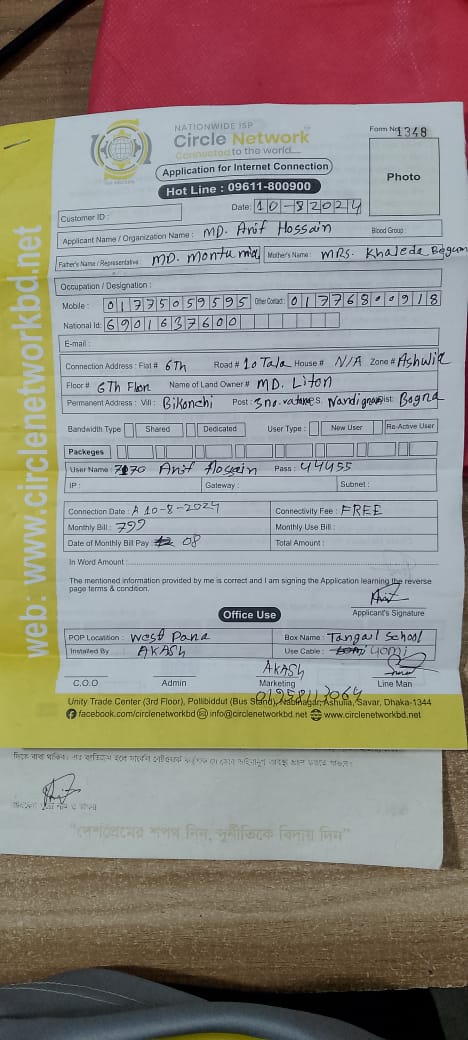 NATIONWIDE ISP
Circle Network
Connected to the world....
Form No 1348
Application for Internet Connection
Hot Line : 09611-800900
Photo
Date: 10-82024
Customer ID :
Applicant Name / Organization Name : MD. Arif Hossain Blood Group
Father's Name / Representative MD. montu mia Mother's Name : MRS. Khaleda Begum
Occupation / Designation :
Mobile : 01775059595 Other Contact : 01776800918
National Id: 6901637600
E-mail :
Connection Address : Flat # 6Th Road # 10 Tala House # N/A Zone # Ashulia
Floor # 6Th Floor Name of Land Owner # MD. Liton
Permanent Address : Vill : Post : 3 no. P.S Nandigram Dist: Bogra
Bandwidth Type Shared Dedicated User Type : New User Re-Active User
Packeges
User Name : 7170 Arif Hossain Pass : 44455
IP : Gateway : Subnet :
Connection Date : 10-8-2024 Connectivity Fee : FREE
Monthly Bill : 799 Monthly Use Bill :
Date of Monthly Bill Pay : 08 Total Amount :
In Word Amount :
The mentioned information provided by me is correct and I am signing the Application learning the reverse
page terms & condition.
Applicant's Signature
Office Use
POP Locatition : West Para Box Name : Tangail School
Installed By AKASH Use Cable : 40mi
AKASH
C.O.O Admin Marketing Line Man
Unity Trade Center (3rd Floor), Pollibiddut (Bus Stand), Nabinagar, Ashulia, Savar, Dhaka-1344
facebook.com/circlenetworkbd info@circlenetwork.net www.circlenetworkbd.net
web: www.circlenetworkbd.net
"দেশপ্রেমের শপথ নিন, দুর্নীতিকে বিদায় দিন"